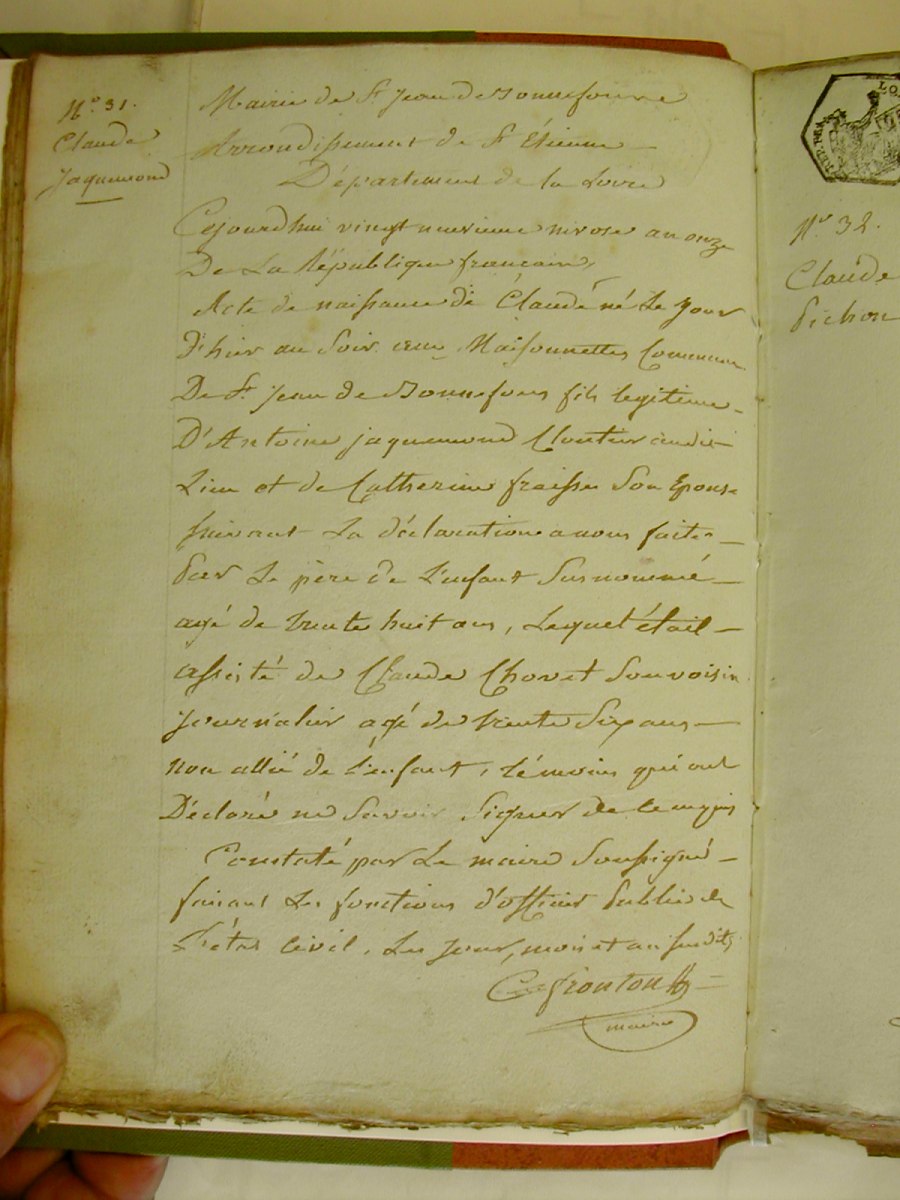 N.° 31.
Claude
Jaquemond
Mairie de St Jean de Bonnefonds
Arrondissement de St Etienne
Département de la Loire
Cejourdhui vingt neuvieme nivose an onze
De La République francaise,
Acte de naissance de Claude né Le Jour
D'hier au Soir aux Maisonnettes Commune
De St Jean de Bonnefons fils legitime
D'Antoine jaquemond Cloutier audit
Lieu et de Catherine fraisse Son Epouse
suivant La déclaration a nous faite
Par Le père de L'enfant Susnommé
agé de trente huit ans, Lequel était
assisté de Claude Chovet Son voisin
Journalier agé de trente Six ans
non allié de L'enfant, témoins qui ont
Déclaré ne Savoir Signer de ce requis
Constaté par Le maire Soussigné
faisant Les fonctions d'officier Public de
L'état civil, Les jour, mois et an susdits
fronton
maire
N.° 32.
Claude
Pichon